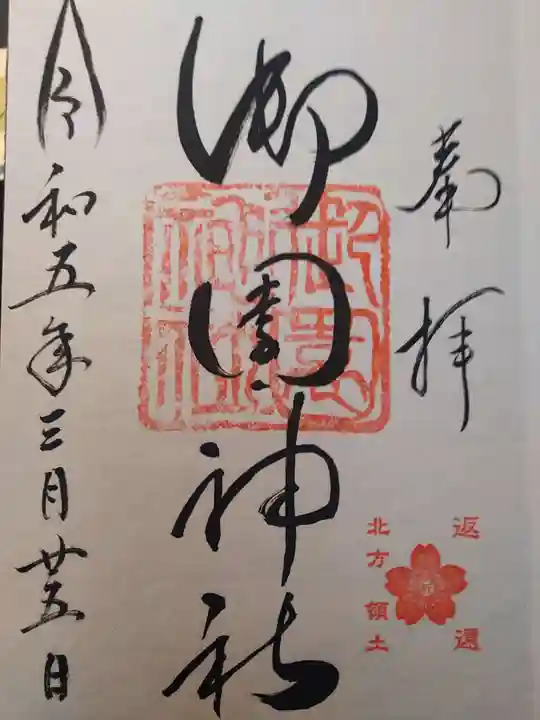 奉拝
返還
北方領土
御園神社
令和五年三月廿五日